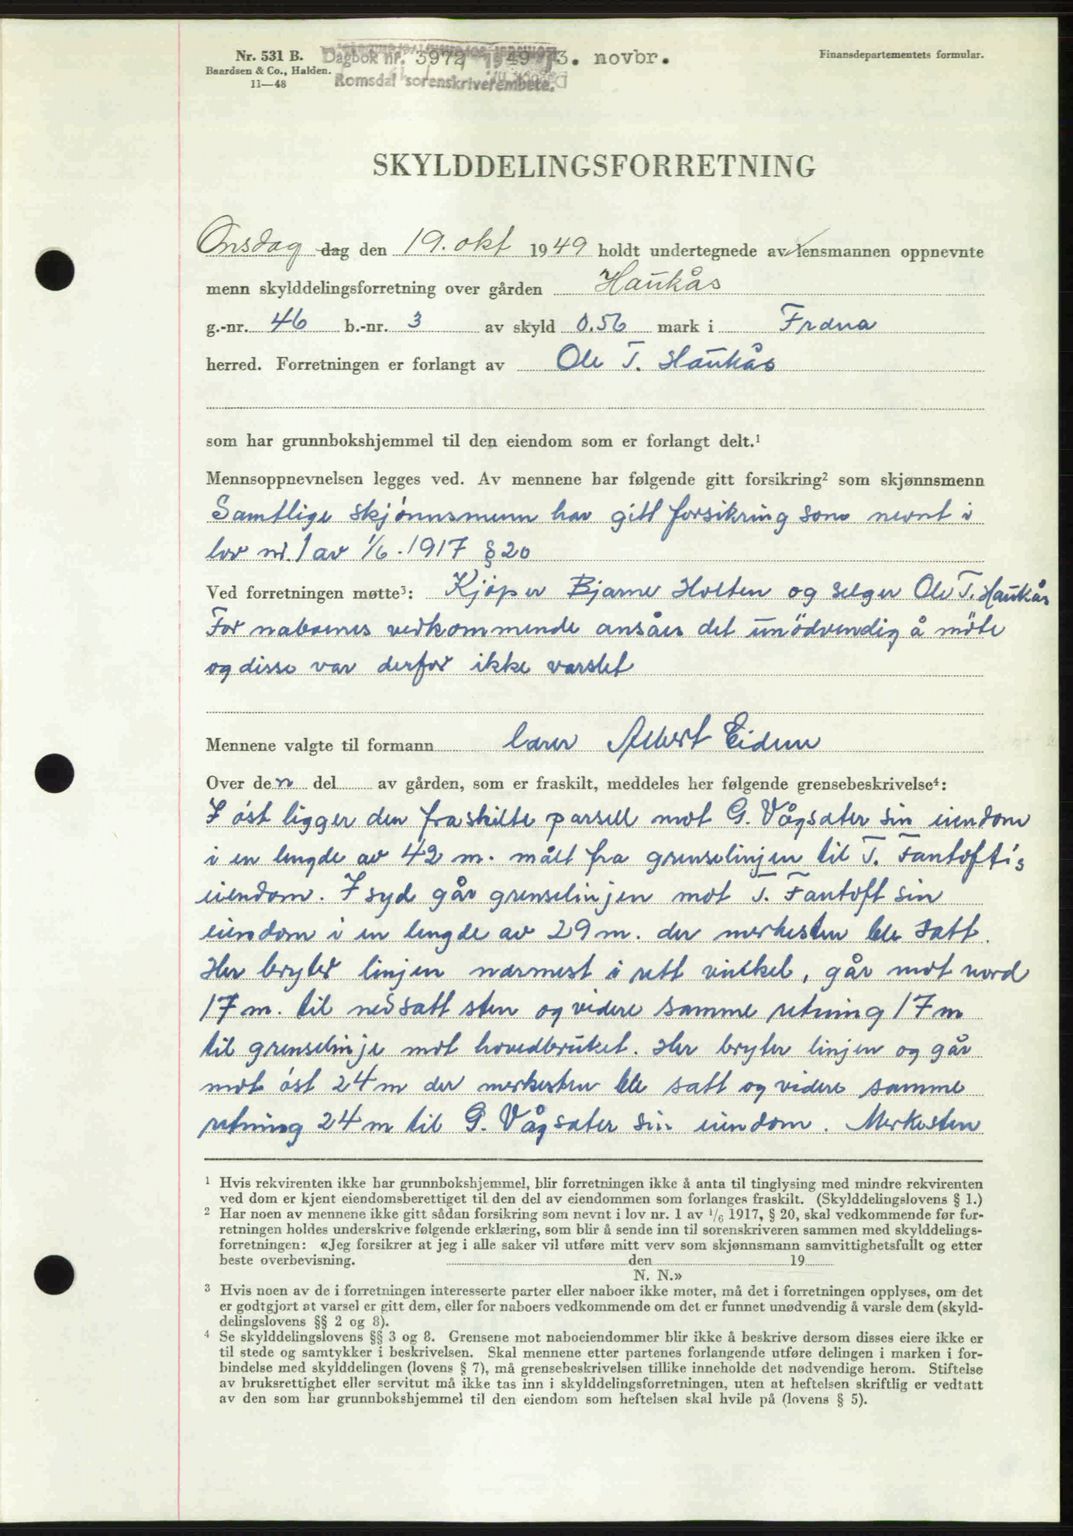 Nr. 531 B.
Baardsen & Co., Halden.
11—48
Dagbok nr. 3972 1949 3. novbr.
Romsdal sorenskriverembete.
Finansdepartementets formular.
SKYLDDELINGSFORRETNING
Onsdag dag den 19. okt 1949 holdt undertegnede av lensmannen oppnevnte
menn skylddelingsforretning over gården Haukås
g.-nr. 46 b.-nr. 3 av skyld 0.56 mark i Fræna
herred. Forretningen er forlangt av Ole T. Haukås
som har grunnbokshjemmel til den eiendom som er forlangt delt.¹
Mennsoppnevnelsen legges ved. Av mennene har følgende gitt forsikring² som skjønnsmenn
Samtlige skjönnsmenn har gitt forsikring som nevnt i
lov nr. 1 av 1/6.-1917 § 20
Ved forretningen møtte³: Kjöper Bjarne Holten og selger Ole T. Haukås
For naboenes vedkommende ansåes det unödvendig å möte
og disse var derfor ikke varslet
Mennene valgte til formann lærer Albert Eidem
Over den del av gården, som er fraskilt, meddeles her følgende grensebeskrivelse⁴:
I öst ligger den fraskilte parsell mot G. Vågsæter sin eiendom
i en lengde av 42 m. målt fra grenselinjen til T. Fantoft's
eiendom. I syd går grenselinjen mot T. Fantoft sin
eiendom i en lengde av 29 m. der merkesten ble satt.
Her bryter linjen nærmest i rett vinkel, går mot nord
17 m. til nedsatt sten og videre samme retning 17 m
til grenselinje mot hovedbruket. Her bryter linjen og går
mot öst 24 m der merkesten ble satt og videre samme
retning 24 m til G. Vågsæter sin eiendom. Merkesten
¹ Hvis rekvirenten ikke har grunnbokshjemmel, blir forretningen ikke å anta til tinglysing med mindre rekvirenten
ved dom er kjent eiendomsberettiget til den del av eiendommen som forlanges fraskilt. (Skylddelingslovens § 1.)
² Har noen av mennene ikke gitt sådan forsikring som nevnt i lov nr. 1 av 1/6 1917, § 20, skal vedkommende før for-
retningen holdes underskrive følgende erklæring, som blir å sende inn til sorenskriveren sammen med skylddelings-
forretningen: «Jeg forsikrer at jeg i alle saker vil utføre mitt verv som skjønnsmann samvittighetsfullt og etter
beste overbevisning. den 19
N. N.»
³ Hvis noen av de i forretningen interesserte parter eller naboer ikke møter, må det i forretningen opplyses, om det
er godtgjort at varsel er gitt dem, eller for naboers vedkommende om det er funnet unødvendig å varsle dem (skyld-
delingslovens §§ 2 og 8).
⁴ Se skylddelingslovens §§ 3 og 8. Grensene mot naboeiendommer blir ikke å beskrive dersom disses eiere ikke er
til stede og samtykker i beskrivelsen. Skal mennene etter partenes forlangende utføre delingen i marken i for-
bindelse med skylddelingen (lovens § 7), må grensebeskrivelsen tillike inneholde det nødvendige herom. Stiftelse
av bruksrettighet eller servitut må ikke tas inn i skylddelingsforretningen, uten at heftelsen skriftlig er vedtatt
av den som har grunnbokshjemmel til den eiendom som heftelsen skal hvile på (lovens § 5).